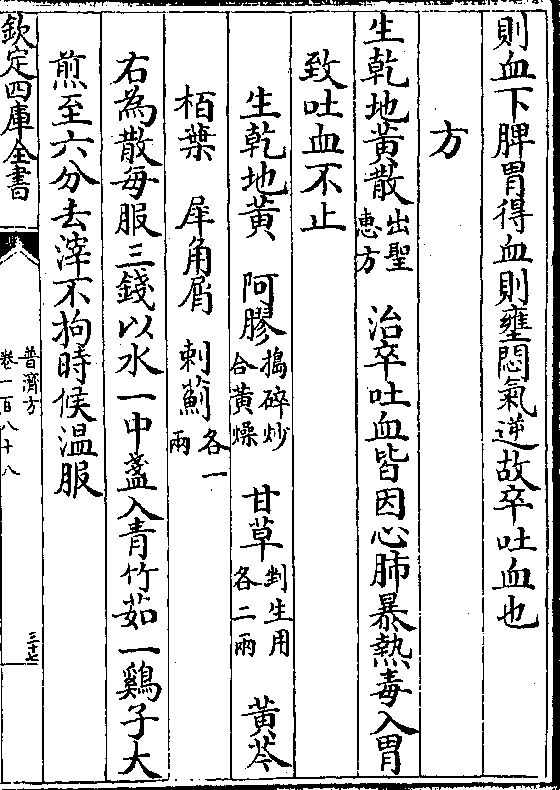 則血下脾胃得血則壅悶氣逆故卒吐血也
方
生乾地黄散出聖惠方 治卒吐血皆因心肺暴熱毒入胃
致吐血不止
生乾地黄 阿膠搗碎炒合黄燥 甘草剉生用各二兩 黄芩
栢葉 犀角屑 刺薊各一兩
右為散每服三錢以水一中盞入青竹茹一鷄子大
煎至六分去滓不拘時候温服
欽定四庫全書
普濟方
卷一百八十八
三十七